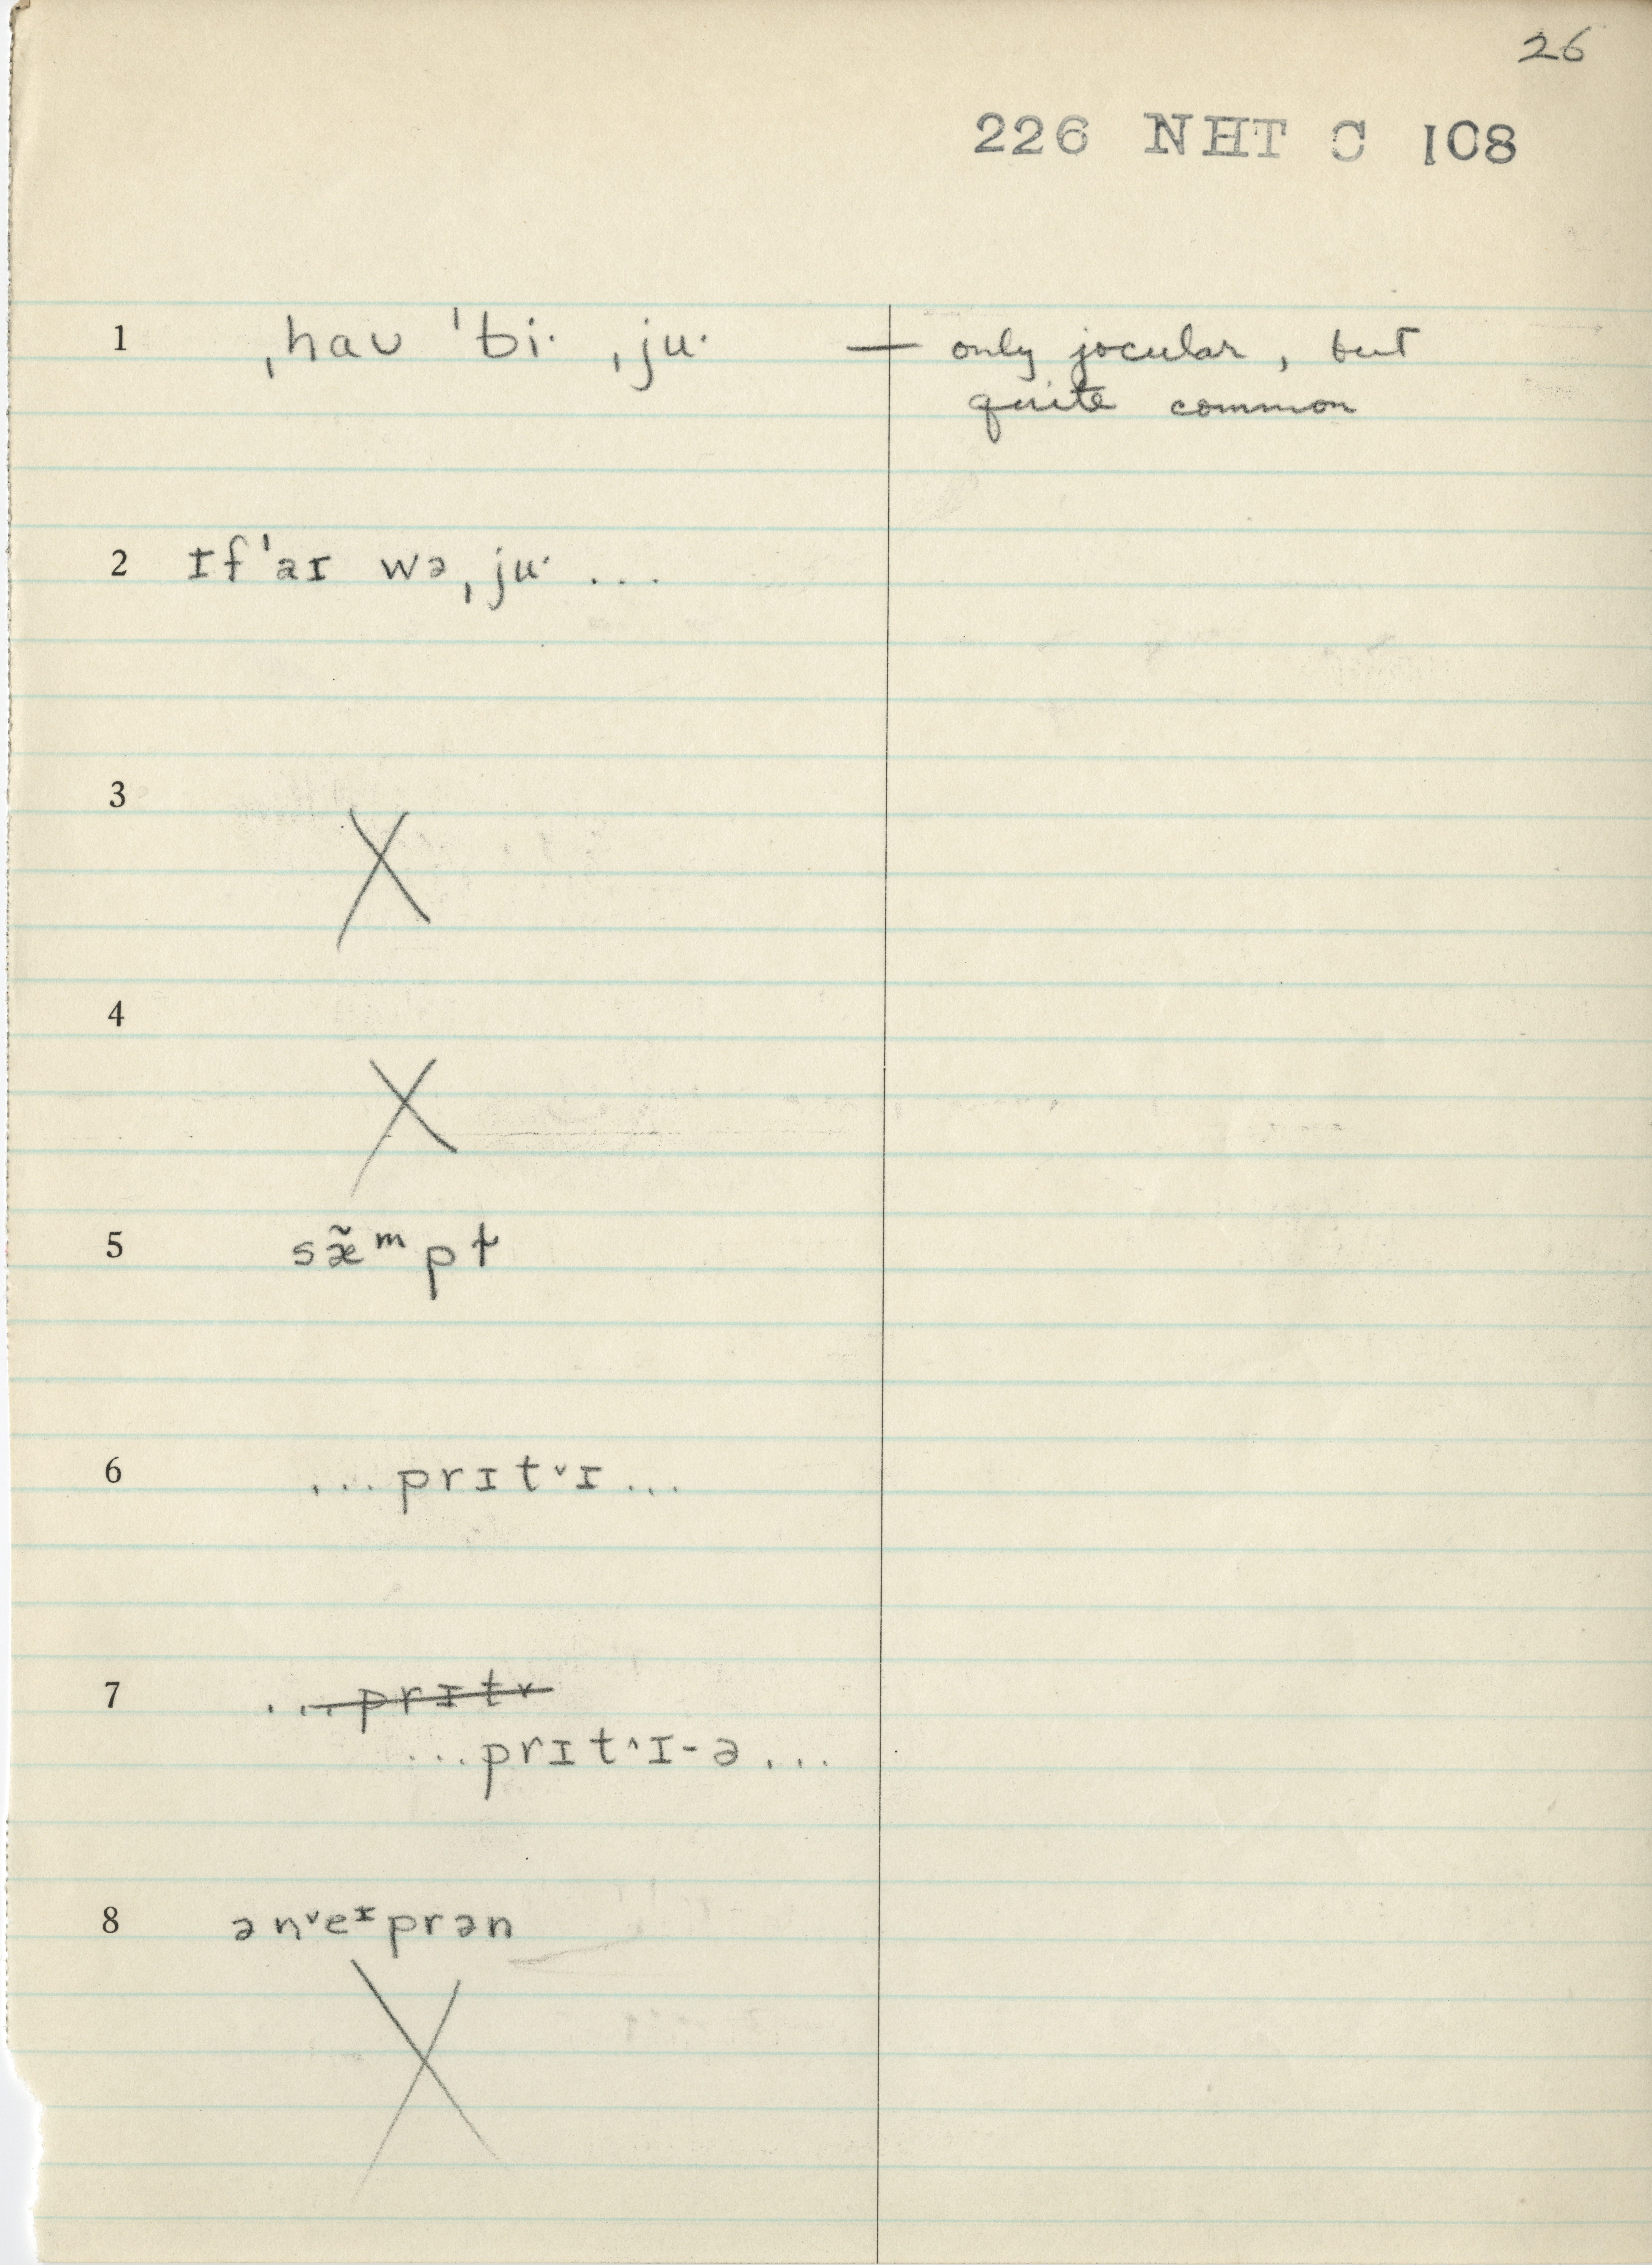 26
226 NHT C 108
1 ˌhaʊ ˈbi· ˌju· — only jocular, but
quite common
2 ɪfˈaɪ wəˌju· ...
3 X
4 X
5 sæ̃ᵐpt
6 ...prɪt˅ɪ...
7 ...prɪt˅
...prɪt˄ɪ-ə...
8 ən˅eᶦprən
X